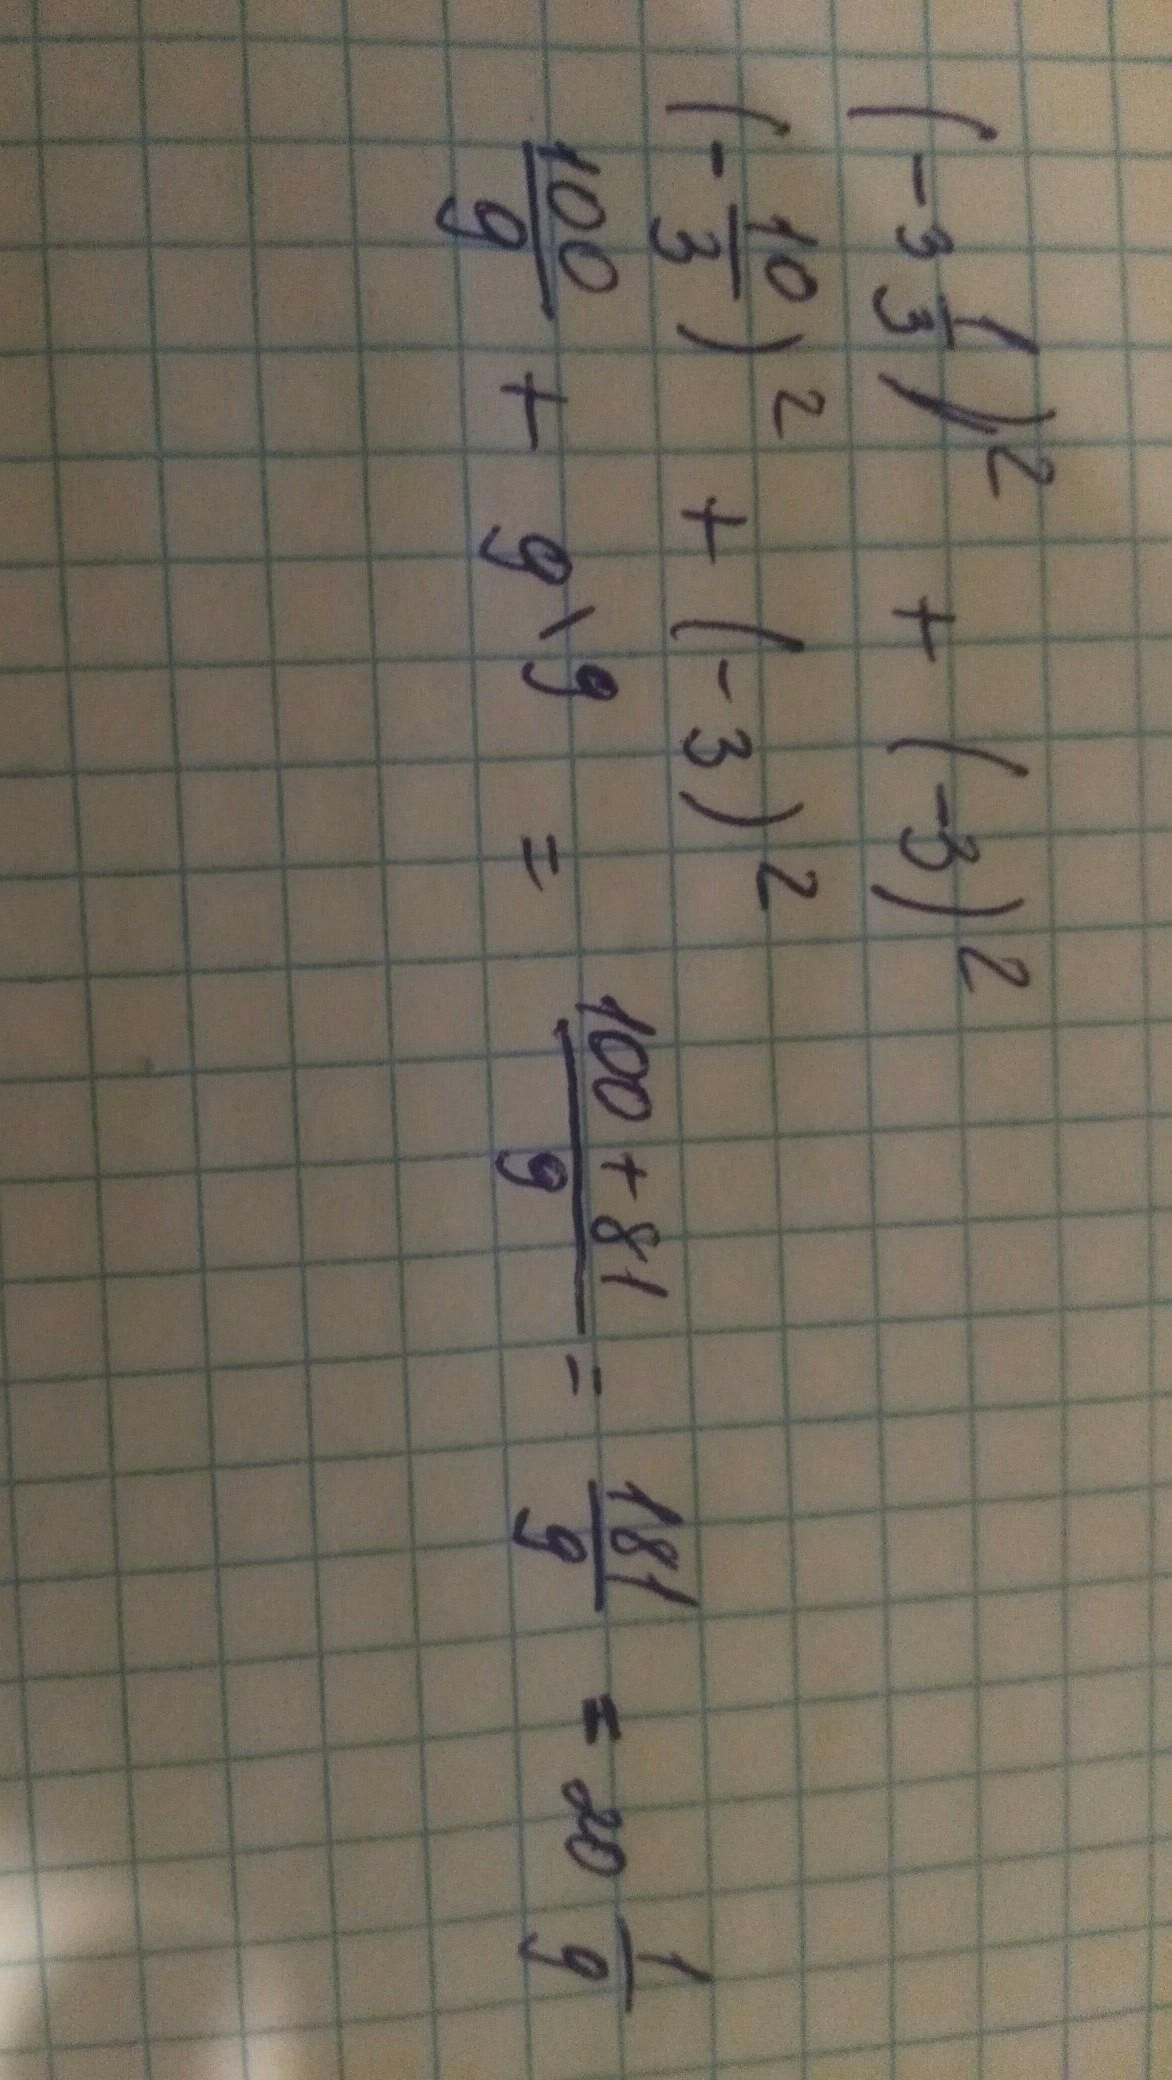 (-3 1/3)² + (-3)²
(-10/3)² + (-3)²
100/9 + 9\9 = (100 + 81)/9 = 181/9 = 20 1/9